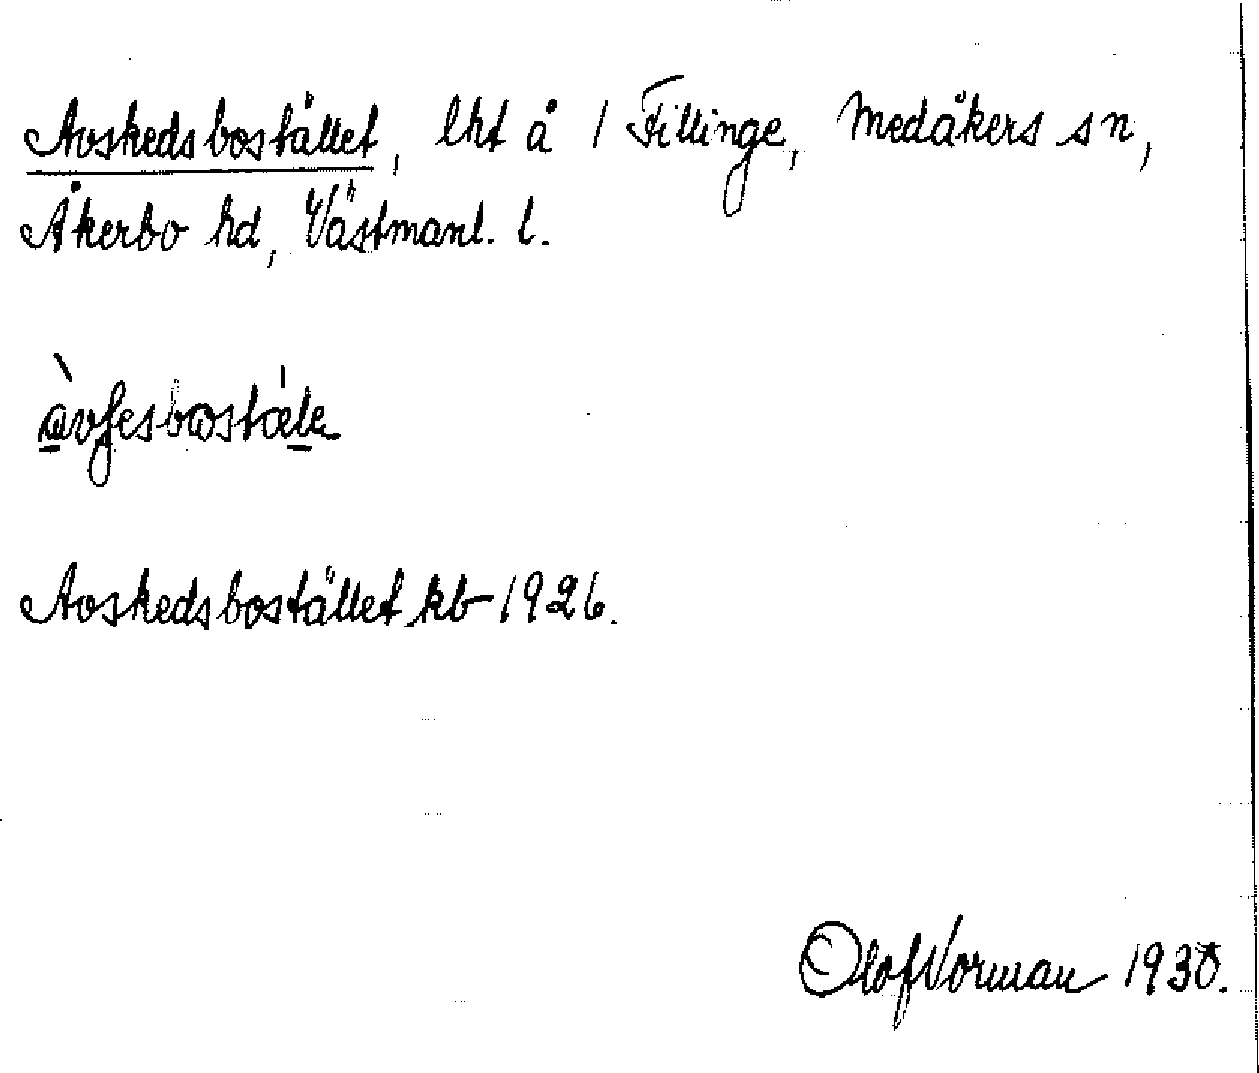 Avskedsbostället, lht å 1 Fillinge, Medåkers sn,
Åkerbo hd, Västmanl. l.
Avskedsbostället kb 1926.
Olof Vorman 1930.